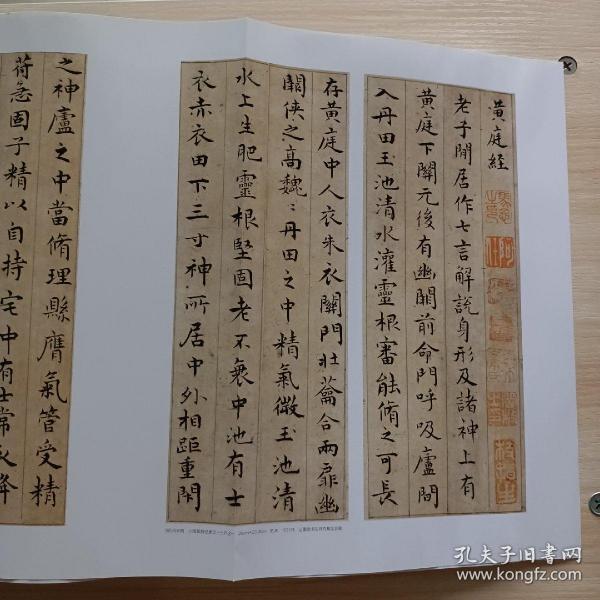 黄庭経
老子閒居作七言解說身形及諸神上有
黄庭下關元後有幽關前命門呼吸廬間
入丹田玉池清水灌靈根審能脩之可長
存黄庭中人衣朱衣關門壮籥合兩扉幽
關侠之高魏〻丹田之中精氣微玉池清
水上生肥靈根堅固老不衰中池有士
衣赤衣田下三寸神所居中外相距重閇
之神廬之中當脩理縣膺氣管受精
苻急固子精以自持宅中有士常衣絳
孔夫子旧书网
www.kongfz.com